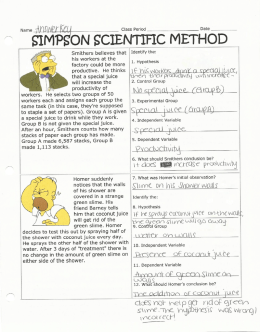 Name Answer Key Class Period Date
SIMPSON SCIENTIFIC METHOD
Smithers believes that
his workers at the
factory could be more
productive. He thinks
that a special juice
will increase the
productivity of
workers. He selects two groups of 50
workers each and assigns each group the
same task (in this case, they're supposed
to staple a set of papers). Group A is given
a special juice to drink while they work.
Group B is not given the special juice.
After an hour, Smithers counts how many
stacks of paper each group has made.
Group A made 6,587 stacks, Group B
made 1,113 stacks.
Identify the:
1. Hypothesis
If his workers drink a special juice,
then their productivity will increase.
2. Control Group
No special juice (Group B)
3. Experimental Group
Special juice (Group A)
4. Independent Variable
special juice
5. Dependent Variable
Productivity
6. What should Smithers conclude be?
it does increase productivity
Homer suddenly
notices that the walls
of his shower are
covered in a strange
green slime. His
friend Barney tells
him that coconut juice
will get rid of the
green slime. Homer
decides to test this out by spraying half of
the shower with coconut juice every day.
He sprays the other half of the shower with
water. After 3 days of "treatment" there is
no change in the amount of green slime on
either side of the shower.
7. What was Homer's initial observation?
Slime on his shower walls
Identify the:
8. Hypothesis
If he sprays coconut juice on the walls,
the green slime will go away
9. Control Group
water on walls
10. Independent Variable
Presence of coconut juice
11. Dependent Variable
Amount of green slime on
walls
12. What should Homer's conclusion be?
The addition of coconut juice
does not help get rid of green
slime. The hypothesis was wrong/
incorrect